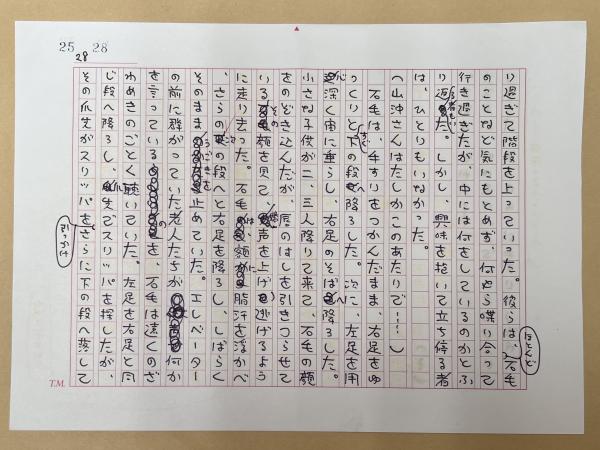 25 28
28
り過ぎて階段を上っていった。彼らは、石毛
ほとんど
のことなど気にもとめず、何やら喋り合って
行き過ぎたが、中には何をしているのかとふ
り返る者もいた。しかし、興味を抱いて立ち停る者
は、ひとりもいなかった。
へ山沖さんはたしかこのあたりで……〉
石毛は、手すりをつかんだまま、右足をゆ
っくりとすぐ下の段へ降ろした。次に、左足を用
心深く宙に垂らし、右足のそばへ降ろした。
小さな子供が二、三人降りて来て、石毛の顔
をのぞき込んだが、唇のはしを引きつらせて
いるその顔を見て、声を上げ逃げるよう
に走り去った。石毛は、額に脂汗を浮かべ
、さらに次の段へと右足を降ろし、しばらく
そのままうごきを止めていた。エレベーター
の前に群がっていた老人たちが何か
を言っているのを、石毛は遠くのざ
わめきのごとく聴いていた。左足を右足と同
じ段へ降ろし、爪先でスリッパを探したが、
その爪先がスリッパをさらに下の段へ落して
引っかけ
T.M.